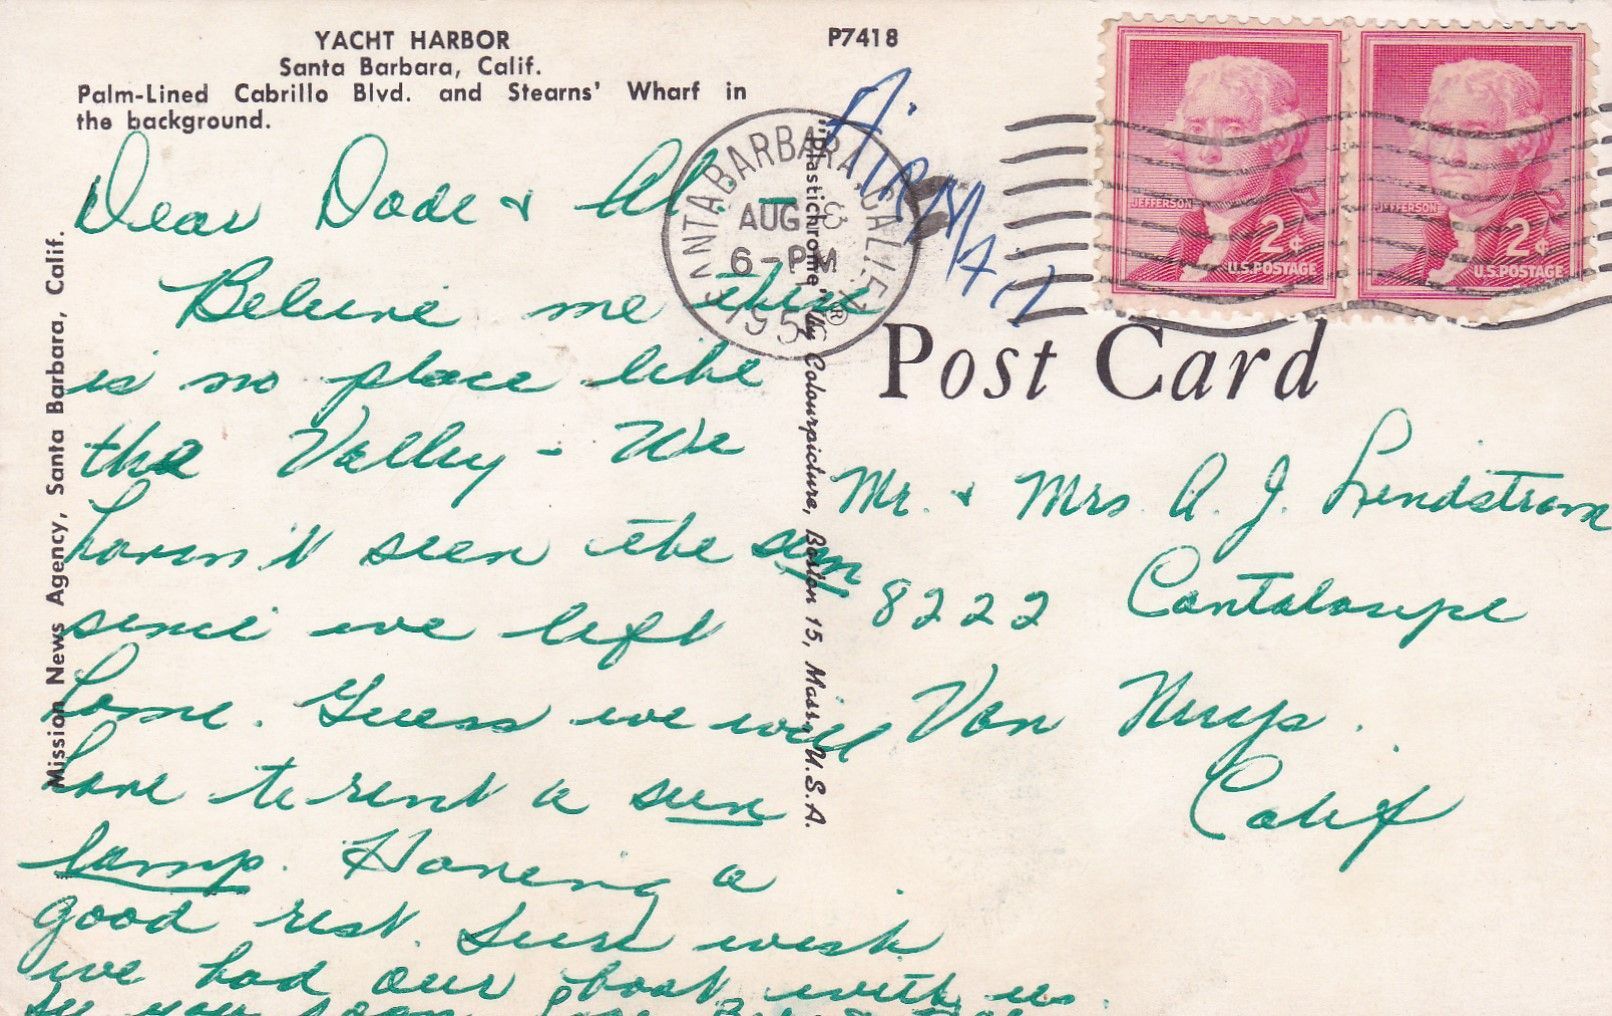 YACHT HARBOR
Santa Barbara, Calif.
Palm-Lined Cabrillo Blvd. and Stearns' Wharf in
the background.
P7418
Dear Dode & Al -
Believe me there
is no place like
the Valley - We
haven't seen the sun
since we left
home. Guess we will
have to rent a sun
lamp. Having a
good rest. Sure wish
we had our boat with us.
See you soon. Love
Mission News Agency, Santa Barbara, Calif.
"Plastichrome"® by Colourpicture, Boston 15, Mass., U.S.A.
SANTA BARBARA, CALIF.
AUG
6-PM
195
AIRMAIL
JEFFERSON
2¢
U.S. POSTAGE
JEFFERSON
2¢
U.S. POSTAGE
Post Card
Mr. & Mrs. A. J. Lindstrom
8222 Cantaloupe
Van Nuys.
Calif